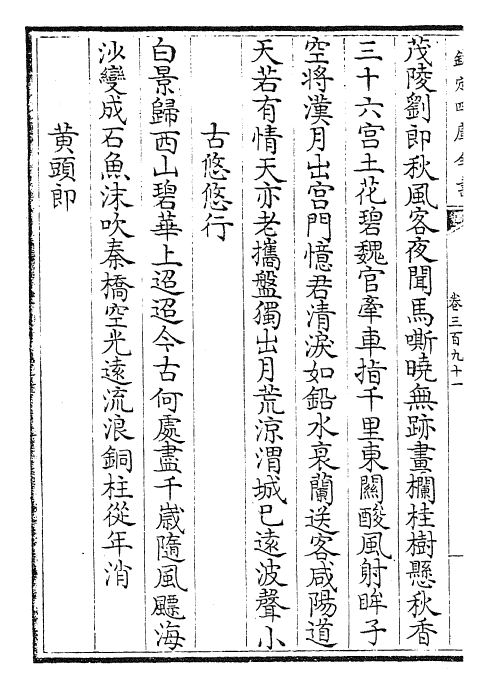 欽定四庫全書
卷三百九十一
茂陵劉郎秋風客夜聞馬嘶曉無跡畫欄桂樹懸秋香
三十六宫土花碧魏官牽車指千里東關酸風射眸子
空將漢月出宫門憶君清淚如鉛水衰蘭送客咸陽道
天若有情天亦老攜盤獨出月荒涼渭城已遠波聲小
古悠悠行
白景歸西山碧華上迢迢今古何處盡千歲隨風飄海
沙變成石魚沫吹秦橋空光遠流浪銅柱從年消
黄頭郎